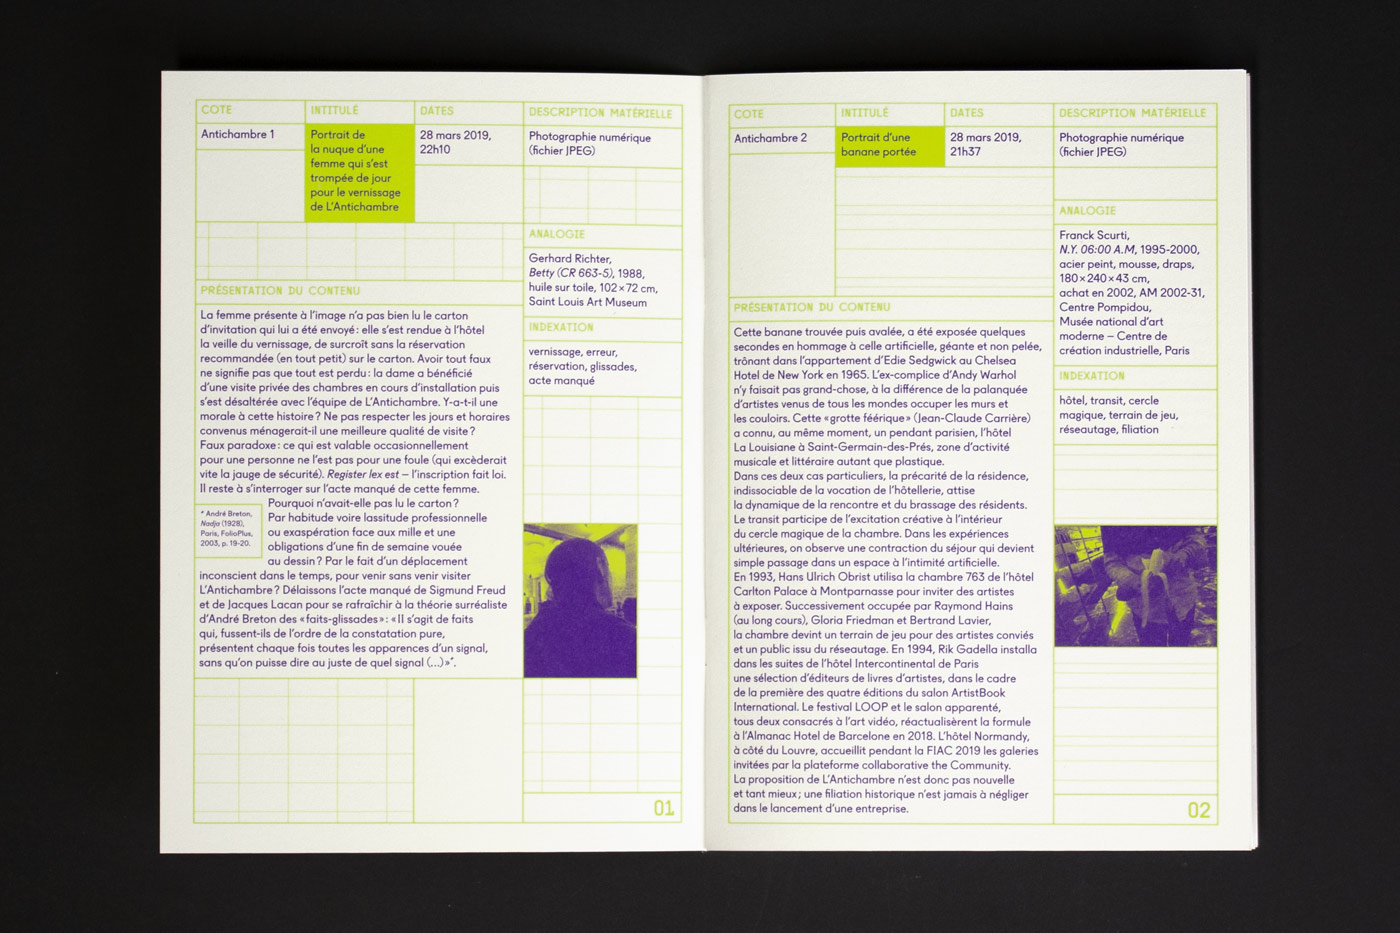 COTE
Antichambre 1
INTITULÉ
Portrait de
la nuque d'une
femme qui s'est
trompée de jour
pour le vernissage
de L'Antichambre
DATES
28 mars 2019,
22h10
DESCRIPTION MATÉRIELLE
Photographie numérique
(fichier JPEG)
ANALOGIE
Gerhard Richter,
Betty (CR 663-5), 1988,
huile sur toile, 102×72 cm,
Saint Louis Art Museum
INDEXATION
vernissage, erreur,
réservation, glissades,
acte manqué
PRÉSENTATION DU CONTENU
La femme présente à l'image n'a pas bien lu le carton
d'invitation qui lui a été envoyé : elle s'est rendue à l'hôtel
la veille du vernissage, de surcroît sans la réservation
recommandée (en tout petit) sur le carton. Avoir tout faux
ne signifie pas que tout est perdu : la dame a bénéficié
d'une visite privée des chambres en cours d'installation puis
s'est désaltérée avec l'équipe de L'Antichambre. Y-a-t-il une
morale à cette histoire ? Ne pas respecter les jours et horaires
convenus ménagerait-il une meilleure qualité de visite ?
Faux paradoxe : ce qui est valable occasionnellement
pour une personne ne l'est pas pour une foule (qui excèderait
vite la jauge de sécurité). Register lex est – l'inscription fait loi.
Il reste à s'interroger sur l'acte manqué de cette femme.
Pourquoi n'avait-elle pas lu le carton ?
Par habitude voire lassitude professionnelle
ou exaspération face aux mille et une
obligations d'une fin de semaine vouée
au dessin ? Par le fait d'un déplacement
inconscient dans le temps, pour venir sans venir visiter
L'Antichambre ? Délaissons l'acte manqué de Sigmund Freud
et de Jacques Lacan pour se rafraîchir à la théorie surréaliste
d'André Breton des « faits-glissades » : « Il s'agit de faits
qui, fussent-ils de l'ordre de la constatation pure,
présentent chaque fois toutes les apparences d'un signal,
sans qu'on puisse dire au juste de quel signal (…) »*.
* André Breton,
Nadja (1928),
Paris, FolioPlus,
2003, p. 19-20.
01
COTE
Antichambre 2
INTITULÉ
Portrait d'une
banane portée
DATES
28 mars 2019,
21h37
DESCRIPTION MATÉRIELLE
Photographie numérique
(fichier JPEG)
ANALOGIE
Franck Scurti,
N.Y. 06:00 A.M, 1995-2000,
acier peint, mousse, draps,
180×240×43 cm,
achat en 2002, AM 2002-31,
Centre Pompidou,
Musée national d'art
moderne – Centre de
création industrielle, Paris
INDEXATION
hôtel, transit, cercle
magique, terrain de jeu,
réseautage, filiation
PRÉSENTATION DU CONTENU
Cette banane trouvée puis avalée, a été exposée quelques
secondes en hommage à celle artificielle, géante et non pelée,
trônant dans l'appartement d'Edie Sedgwick au Chelsea
Hotel de New York en 1965. L'ex-complice d'Andy Warhol
n'y faisait pas grand-chose, à la différence de la palanquée
d'artistes venus de tous les mondes occuper les murs et
les couloirs. Cette « grotte féérique » (Jean-Claude Carrière)
a connu, au même moment, un pendant parisien, l'hôtel
La Louisiane à Saint-Germain-des-Prés, zone d'activité
musicale et littéraire autant que plastique.
Dans ces deux cas particuliers, la précarité de la résidence,
indissociable de la vocation de l'hôtellerie, attise
la dynamique de la rencontre et du brassage des résidents.
Le transit participe de l'excitation créative à l'intérieur
du cercle magique de la chambre. Dans les expériences
ultérieures, on observe une contraction du séjour qui devient
simple passage dans un espace à l'intimité artificielle.
En 1993, Hans Ulrich Obrist utilisa la chambre 763 de l'hôtel
Carlton Palace à Montparnasse pour inviter des artistes
à exposer. Successivement occupée par Raymond Hains
(au long cours), Gloria Friedman et Bertrand Lavier,
la chambre devint un terrain de jeu pour des artistes conviés
et un public issu du réseautage. En 1994, Rik Gadella installa
dans les suites de l'hôtel Intercontinental de Paris
une sélection d'éditeurs de livres d'artistes, dans le cadre
de la première des quatre éditions du salon ArtistBook
International. Le festival LOOP et le salon apparenté,
tous deux consacrés à l'art vidéo, réactualisèrent la formule
à l'Almanac Hotel de Barcelone en 2018. L'hôtel Normandy,
à côté du Louvre, accueillit pendant la FIAC 2019 les galeries
invitées par la plateforme collaborative the Community.
La proposition de L'Antichambre n'est donc pas nouvelle
et tant mieux ; une filiation historique n'est jamais à négliger
dans le lancement d'une entreprise.
02